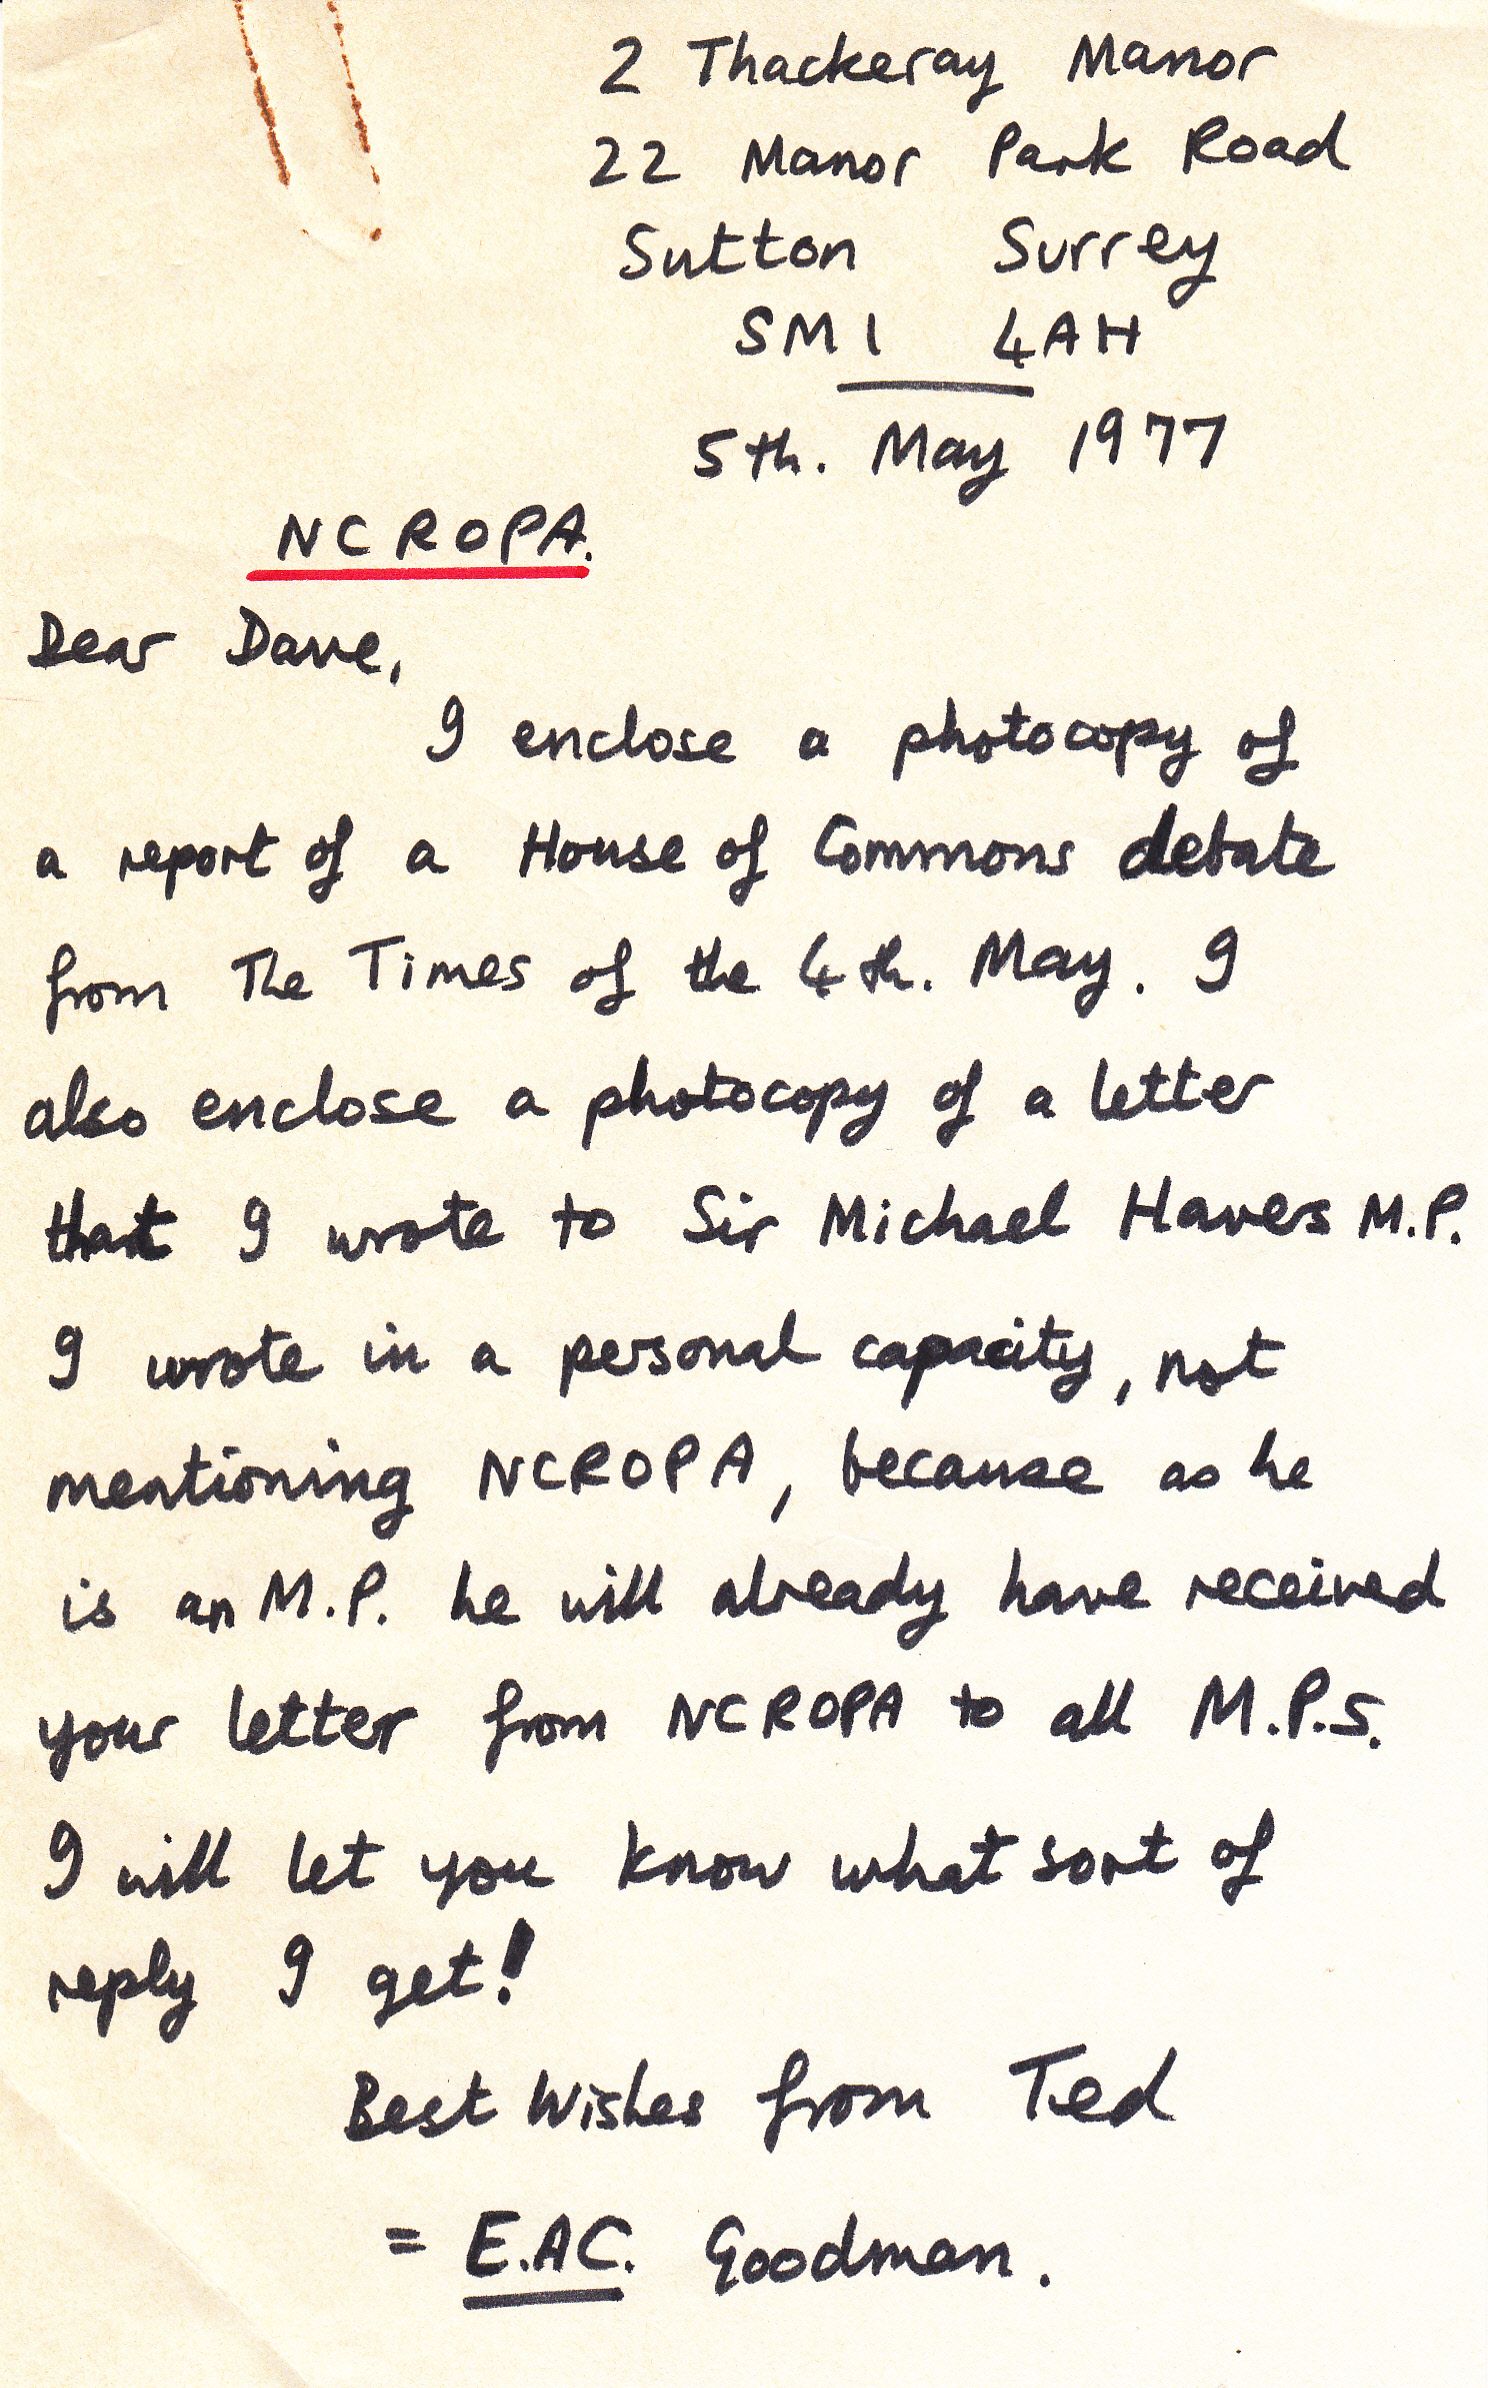 2 Thackeray Manor
22 Manor Park Road
Sutton Surrey
SM1 4AH
5th. May 1977
NCROPA.
Dear Dave,
I enclose a photocopy of
a report of a House of Commons debate
from The Times of the 4th. May. I
also enclose a photocopy of a letter
that I wrote to Sir Michael Havers M.P.
I wrote in a personal capacity, not
mentioning NCROPA, because as he
is an M.P. he will already have received
your letter from NCROPA to all M.P.S.
I will let you know what sort of
reply I get!
Best Wishes from Ted
= E.A.C. Goodman.